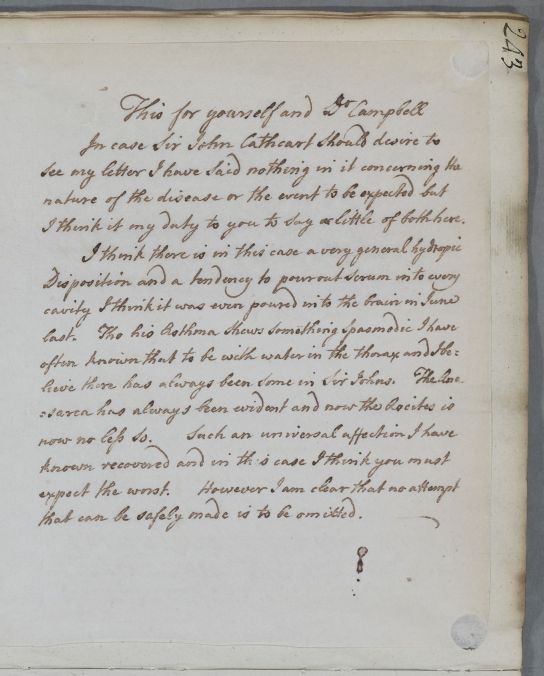 243
This for yourself and Dr Campbell
In case Sir John Cathcart should desire to
see my letter I have said nothing in it concerning the
nature of the disease or the event to be expected but
I think it my duty to you to say a little of both here.
I think there is in this case a very general hydropic
Disposition and a tendency to pour out serum into every
cavity I think it was even poured into the brain in June
last. Tho his Asthma shews something spasmodic I have
often known that to be with water in the thorax and I be=
lieve there has always been some in Sir Johns. The Ana=
=sarca has always been evident and now the Ascites is
now no less so. Such an universal affection I have
known recovered and in this case I think you must
expect the worst. However I am clear that no attempt
that can be safely made is to be omitted.